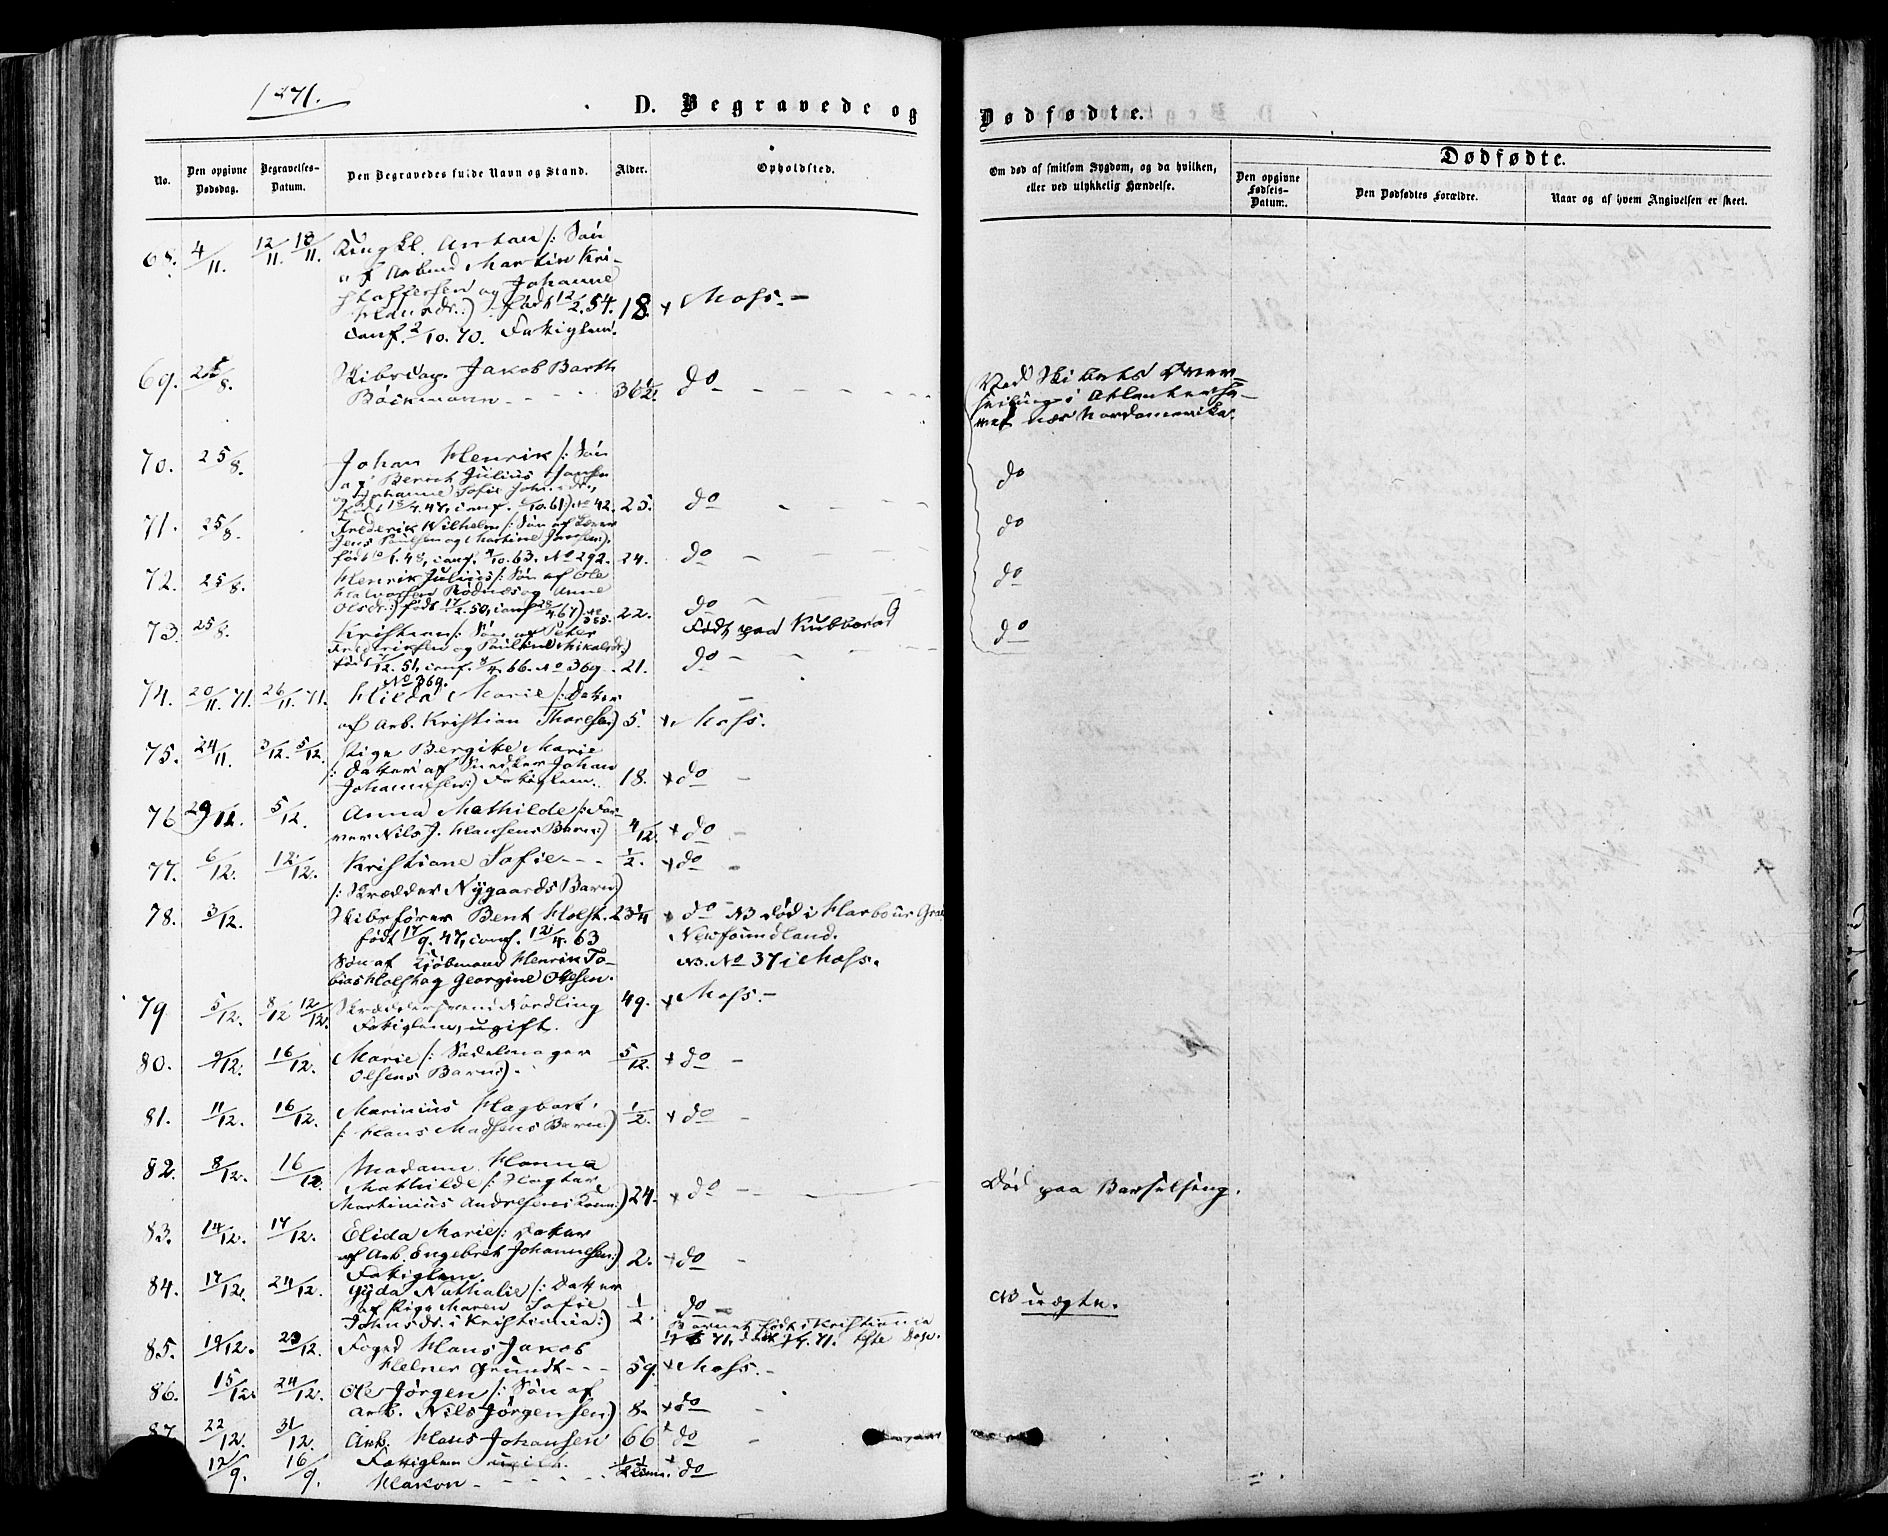 1871.
D. Begravede og
Dødfødte.
No.
Den opgivne Dødsdag.
Begravelses-Datum.
Den Begravedes fulde Navn og Stand.
Alder.
Opholdsted.
Om død af smitsom Sygdom, og da hvilken,
eller ved ulykkelig Hændelse.
Dødfødte.
Den opgivne Fødsels-Datum.
Den Dødfødtes Forældre.
Naar og af hvem Angivelsen er skeet.
68. 4/11. 12/11 18/11. Anton /: Søn
af Arbmd Martin Kri-
stoffersen og Johanne
Hansdr.:) født 12/2.54. 18. + Moss. -
conf. 2/10.70. Fattiglem.
69. 25/8. Jakob Barth
Böckmann - - - 36 1/2. do - - - - -
Ved Skibets Over-
seiling i Atlanterha-
vet nær Nordamerika.
70. 25/8. Johan Henrik /: Søn
af Bernt Julius Jansen
og Johanne Sofie
conf. 10.61). No 42. 25. do - - -
do
71. 25/8. Frederik Wilhelm /: Søn af
Jens Paulsen og Martine Jansen:)
født 48, conf. 4/10.63. No 292. 24. do - -
do
72. 25/8. Henrik Julius /: Søn af Ole
Halvorsen Rødnæs og Anne
Olsdr:) født 17/2.50, conf. 67) No 365. 22. do - -
do
73. 25/8. Kristian /: Søn af Peter
Fredriksen og Pauline Mikalsdr:)
12.51, conf. 8/4.66. No 369. 21. do - -
No 369.
Født paa Kubberød
do
74. 20/11.71. 26/11.71. Hilda Marie /: Datter
af Arb. Kristian Thoresen:) 5. + Moss.
75. 24/11. 3/12. 5/12. Pige Bergitte Marie
/: Datter af Snedker Johan
Johannesen:) Fattiglem. 18. + do -
76. 29/12. 5/12. Anna Mathilde /: Far-
ver Nils J. Hansens Barn:) 4/12. + do -
77. 6/12. 12/12. Kristiane Sofie - - - 1/2. + do -
/: Skrædder Nygaards Barn:)
78. 3/12. Skibsfører Bent Holst. 23 1/4 + do NB død i Harbour Gra
født 17/9.47, conf. 12/4.63 Newfoundland.
Søn af Kjøbmand Henrik To- NB. No 37 i Moss.
bias Holst og Georgine Olsen.
79 5/12. 8/12 12/12. Skræddersvend Nordling 49. + Moss. -
Fattiglem, ugift.
80. 9/12. 16/12. Marie /: Sadelmager 5/12. + do -
Olsens Barn:).
81. 11/12. 16/12. Marinius Hagbart. 1/2. + do -
/: Hans Madsens Barn:)
82. 8/12. 16/12. Madame Hanna
Mathilde /:
Martinius Andresens Kone:) 24. + do -
Død paa Barselseng.
83. 14/12. 17/12. Elida Marie /: Datter
af Arb. Engebret Johannesen:) 2. + do -
Fattiglem.
84. 17/12. 24/12. Gyda Nathalie /: Datter
af Pige Maren Sofie
Johnsdr. i Kristiania:) 1/2. do -
Barnet født i Kristiania
NB uægte.
85. 19/12. 23/12. Foged Hans Jakob
Grundt - - - 59. + Moss. -
86. 15/12. 24/12. Ole Jørgen /: Søn af
Arb. Nils Jørgensen:) 8. + do -
87. 22/12. 31/12. Arb. Hans Johansen 66 + do -
Fattiglem
12/9. 16/9. Hakon - - - - do